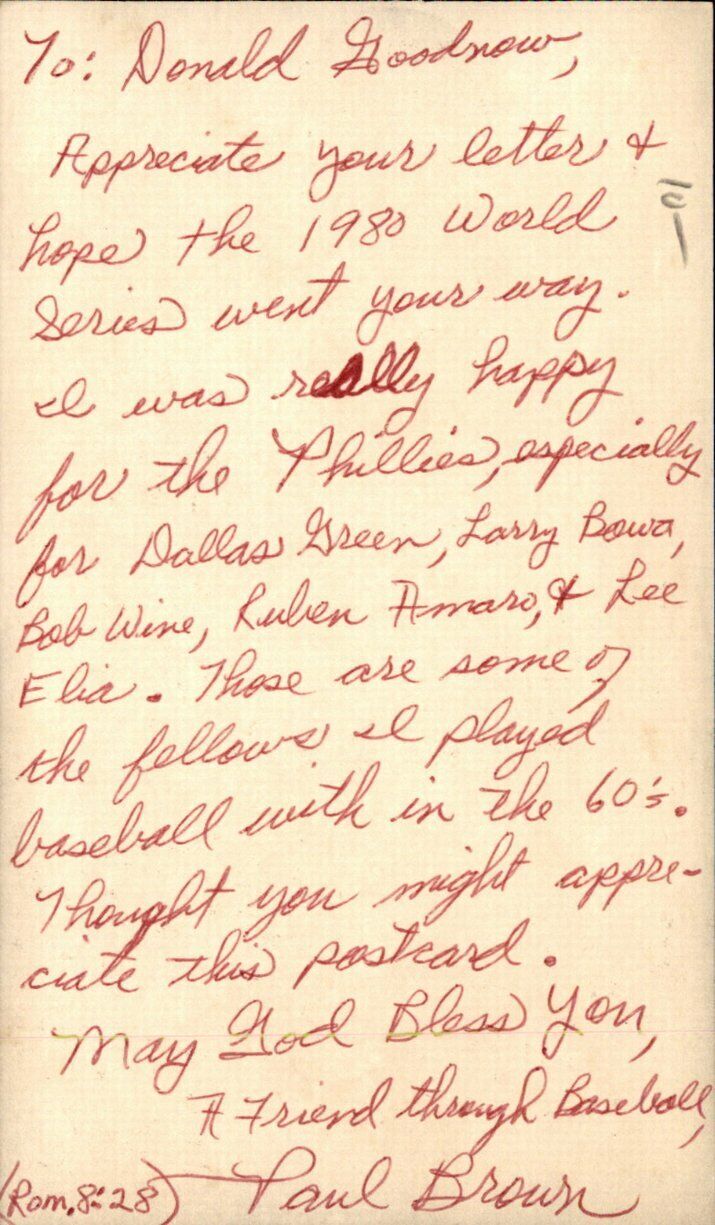 To: Donald Goodnow,
Appreciate your letter &
hope the 1980 World
Series went your way.
I was really happy
for the Phillies, especially
for Dallas Green, Larry Bowa,
Bob Wine, Ruben Amaro, & Lee
Elia. Those are some of
the fellows I played
baseball with in the 60's.
Thought you might appre-
ciate this postcard.
May God Bless You,
A Friend through Baseball,
(Rom. 8:28) Paul Brown